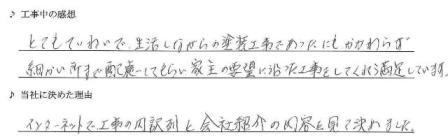 ♪ 工事中の感想
とてもていねいで、生活しながらの塗装工事であったにもかかわらず
細かい所まで配慮してもらい家主の要望に沿った工事をしてくれ満足しています。
♪ 当社に決めた理由
インターネットで工事の内訳料と会社紹介の内容を見て決めました。